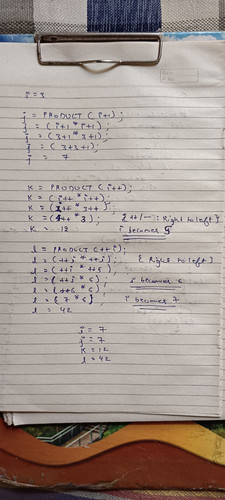 i = 3
j = PRODUCT (i+1);
j = (i+1 * i+1);
j = (3+1 * 3+1);
j = (3+3+1);
j = 7
K = PRODUCT (i++);
K = (i++ * i++);
K = ( * 3++);
K = (4++ * 3); { ++/-- : Right to left }
K = 12 i becomes 5
l = PRODUCT (++i);
l = (++i * ++i); { Right to left }
l = (++i * ++5);
l = (++i * 6); i becomes 6
l = (++6 * 6); i becomes 7
l = (7 * 6)
l = 42
i = 7
j = 7
K = 12
l = 42